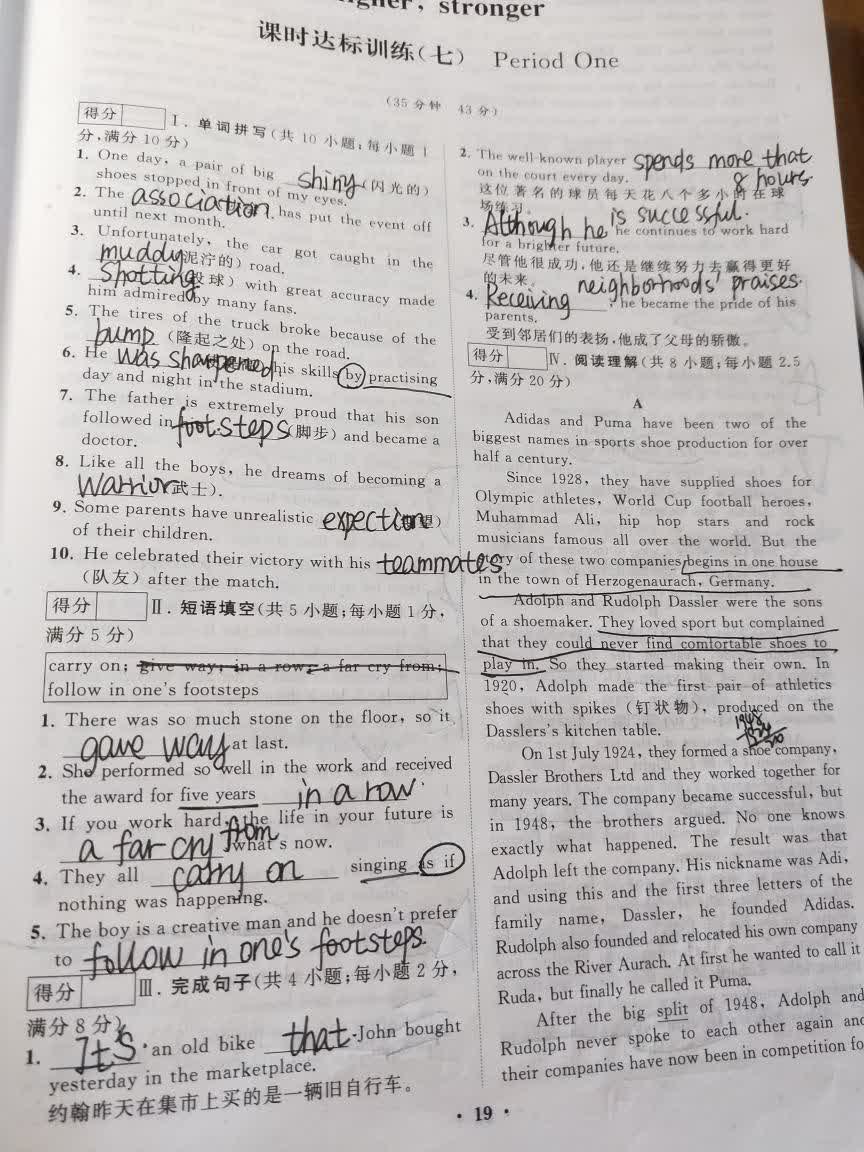 higher, stronger
课时达标训练(七) Period One
(35分钟 43分)
得分
Ⅰ. 单词拼写(共 10 小题;每小题 1
分,满分 10 分)
1. One day, a pair of big shiny (闪光的)
shoes stopped in front of my eyes.
2. The association has put the event off
until next month.
3. Unfortunately, the car got caught in the
muddy 泥泞的) road.
4. Shotting 投球) with great accuracy made
him admired by many fans.
5. The tires of the truck broke because of the
bump (隆起之处) on the road.
6. He was sharpened his skills by practising
day and night in the stadium.
7. The father is extremely proud that his son
followed in foot.steps (脚步) and became a
doctor.
8. Like all the boys, he dreams of becoming a
Warrior 武士).
9. Some parents have unrealistic expection 望)
of their children.
10. He celebrated their victory with his teammates
(队友) after the match.
得分
Ⅱ. 短语填空(共 5 小题;每小题 1 分,
满分 5 分)
carry on; give way; in a row; a far cry from;
follow in one's footsteps
1. There was so much stone on the floor, so it
gave way at last.
2. She performed so well in the work and received
the award for five years in a row.
3. If you work hard, the life in your future is
a far cry from what's now.
4. They all carry on singing as if
nothing was happening.
5. The boy is a creative man and he doesn't prefer
to follow in one's footsteps.
得分
Ⅲ. 完成句子(共 4 小题;每小题 2 分,
满分 8 分)
1. It's an old bike that John bought
yesterday in the marketplace.
约翰昨天在集市上买的是一辆旧自行车。
2. The well-known player spends more that
8 hours.
on the court every day.
这位著名的球员每天花八个多小时在球
场练习。
3. Although he is successful.
he continues to work hard
for a brighter future.
尽管他很成功,他还是继续努力去赢得更好
的未来。
4. Receiving neighborhoods' praises.
, he became the pride of his
parents.
受到邻居们的表扬,他成了父母的骄傲。
得分
Ⅳ. 阅读理解(共 8 小题;每小题 2.5
分,满分 20 分)
A
Adidas and Puma have been two of the
biggest names in sports shoe production for over
half a century.
Since 1928, they have supplied shoes for
Olympic athletes, World Cup football heroes,
Muhammad Ali, hip hop stars and rock
musicians famous all over the world. But the
ry of these two companies begins in one house
in the town of Herzogenaurach, Germany.
Adolph and Rudolph Dassler were the sons
of a shoemaker. They loved sport but complained
that they could never find comfortable shoes to
play in. So they started making their own. In
1920, Adolph made the first pair of athletics
shoes with spikes (钉状物), produced on the
Dasslers's kitchen table.
1948
On 1st July 1924, they formed a shoe company,
Dassler Brothers Ltd and they worked together for
many years. The company became successful, but
in 1948, the brothers argued. No one knows
exactly what happened. The result was that
Adolph left the company. His nickname was Adi,
and using this and the first three letters of the
family name, Dassler, he founded Adidas.
Rudolph also founded and relocated his own company
across the River Aurach. At first he wanted to call it
Ruda, but finally he called it Puma.
After the big split of 1948, Adolph and
Rudolph never spoke to each other again and
their companies have now been in competition fo
• 19 •